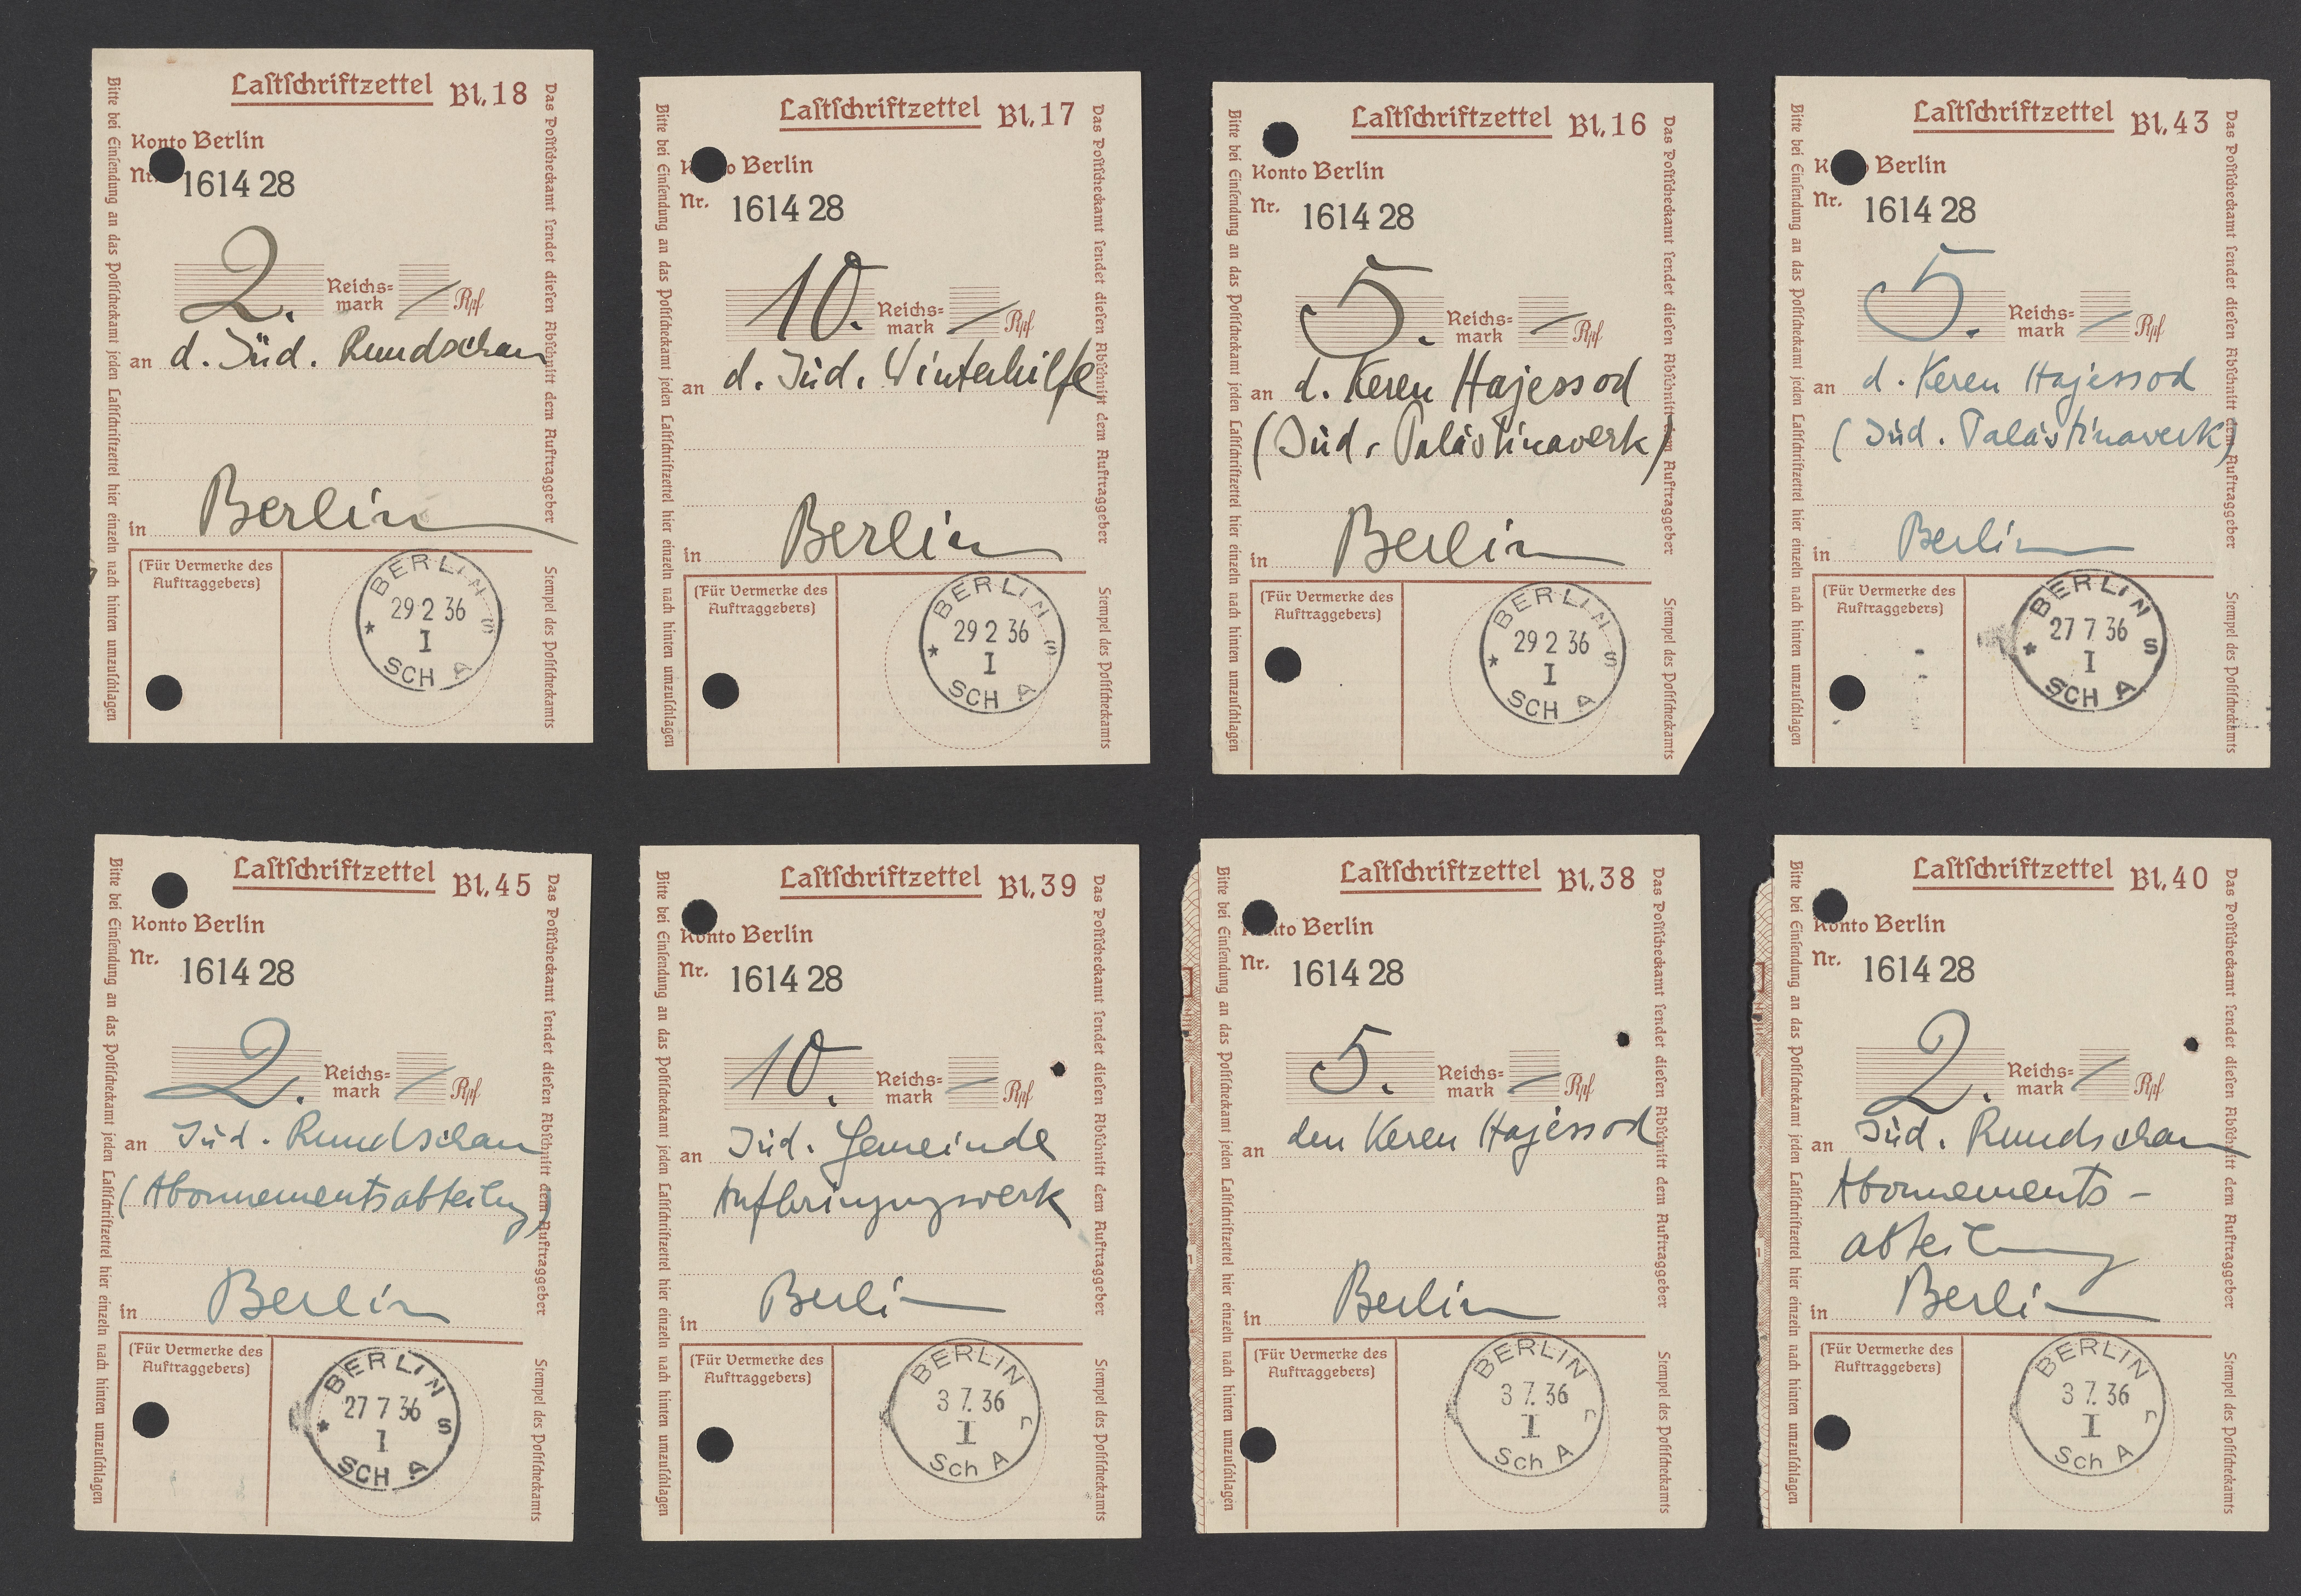 Lastschriftzettel Bl. 18
Konto Berlin
Nr. 1614 28
2. Reichs-
mark — Rpf
an d. Jüd. Rundschau
in Berlin
(Für Vermerke des
Auftraggebers)
BERLIN S
29 2 36
I
* SCH A
Bitte bei Einsendung an das Postscheckamt jeden Lastschriftzettel hier einzeln nach hinten umzuschlagen
Das Postscheckamt sendet diesen Abschnitt dem Auftraggeber
Stempel des Postscheckamts
Lastschriftzettel Bl. 17
Konto Berlin
Nr. 1614 28
10. Reichs-
mark — Rpf
an d. Jüd. Winterhilfe
in Berlin
(Für Vermerke des
Auftraggebers)
BERLIN S
29 2 36
I
* SCH A
Bitte bei Einsendung an das Postscheckamt jeden Lastschriftzettel hier einzeln nach hinten umzuschlagen
Das Postscheckamt sendet diesen Abschnitt dem Auftraggeber
Stempel des Postscheckamts
Lastschriftzettel Bl. 16
Konto Berlin
Nr. 1614 28
5. Reichs-
mark — Rpf
an d. Keren Hajessod
(Jüd. Palästinawerk)
in Berlin
(Für Vermerke des
Auftraggebers)
BERLIN S
29 2 36
I
* SCH A
Bitte bei Einsendung an das Postscheckamt jeden Lastschriftzettel hier einzeln nach hinten umzuschlagen
Das Postscheckamt sendet diesen Abschnitt dem Auftraggeber
Stempel des Postscheckamts
Lastschriftzettel Bl. 43
Konto Berlin
Nr. 1614 28
5. Reichs-
mark — Rpf
an d. Keren Hajessod
(Jüd. Palästinawerk)
in Berlin
(Für Vermerke des
Auftraggebers)
BERLIN S
27 7 36
I
* SCH A
Bitte bei Einsendung an das Postscheckamt jeden Lastschriftzettel hier einzeln nach hinten umzuschlagen
Das Postscheckamt sendet diesen Abschnitt dem Auftraggeber
Stempel des Postscheckamts
Lastschriftzettel Bl. 45
Konto Berlin
Nr. 1614 28
2. Reichs-
mark — Rpf
an Jüd. Rundschau
(Abonnementsabteilung)
in Berlin
(Für Vermerke des
Auftraggebers)
BERLIN S
27 7 36
I
* SCH A
Bitte bei Einsendung an das Postscheckamt jeden Lastschriftzettel hier einzeln nach hinten umzuschlagen
Das Postscheckamt sendet diesen Abschnitt dem Auftraggeber
Stempel des Postscheckamts
Lastschriftzettel Bl. 39
Konto Berlin
Nr. 1614 28
10. Reichs-
mark — Rpf
an Jüd. Gemeinde
Aufbringungswerk
in Berlin
(Für Vermerke des
Auftraggebers)
BERLIN r
3 7. 36
I
Sch A
Bitte bei Einsendung an das Postscheckamt jeden Lastschriftzettel hier einzeln nach hinten umzuschlagen
Das Postscheckamt sendet diesen Abschnitt dem Auftraggeber
Stempel des Postscheckamts
Lastschriftzettel Bl. 38
Konto Berlin
Nr. 1614 28
5. Reichs-
mark — Rpf
an den Keren Hajessod
in Berlin
(Für Vermerke des
Auftraggebers)
BERLIN r
3 7. 36
I
Sch A
Bitte bei Einsendung an das Postscheckamt jeden Lastschriftzettel hier einzeln nach hinten umzuschlagen
Das Postscheckamt sendet diesen Abschnitt dem Auftraggeber
Stempel des Postscheckamts
Lastschriftzettel Bl. 40
Konto Berlin
Nr. 1614 28
2. Reichs-
mark — Rpf
an Jüd. Rundschau
Abonnements-
abteilung
in Berlin
(Für Vermerke des
Auftraggebers)
BERLIN r
3 7. 36
I
Sch A
Bitte bei Einsendung an das Postscheckamt jeden Lastschriftzettel hier einzeln nach hinten umzuschlagen
Das Postscheckamt sendet diesen Abschnitt dem Auftraggeber
Stempel des Postscheckamts